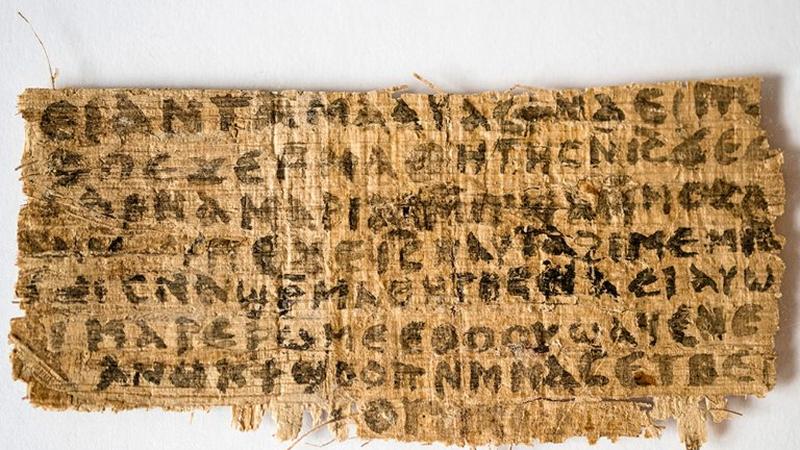 ⲉⲓ ⲁⲛ ⲧⲁⲙⲁⲁⲩ ⲁⲥϯ ⲛⲁⲉⲓ
ⲡⲉϫⲉ ⲙⲙⲁⲑⲏⲧⲏⲥ ⲛⲓ̅ⲥ̅ ϫⲉ
ⲁⲣⲛⲁ ⲙⲁⲣⲓⲁⲙ
ⲡⲉϫⲉ ⲓ̅ⲥ̅ ⲛⲁⲩ ⲧⲁϩⲓⲙⲉ ⲙⲛ
ⲥⲛⲁϣⲣⲙⲁⲑⲏⲧⲏⲥ ⲛⲁⲉⲓ ⲁⲩⲱ
ⲓ ⲙⲁⲣⲉⲣⲱⲙⲉ ⲉⲑⲟⲟⲩ ϣⲁϥⲉ ⲛⲉ
ⲁⲛⲟⲕ ϯϣⲟⲟⲡ ⲛⲙⲙⲁⲥ ⲉⲧⲃⲉ